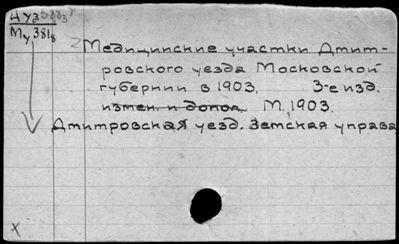 Му 381б
Медицинские участки Дмит-
ровского уезда Московской
губернии в 1903. 3-е изд.
измен. и допол. М, 1903.
Дмитровская уезд. Земская управа
х